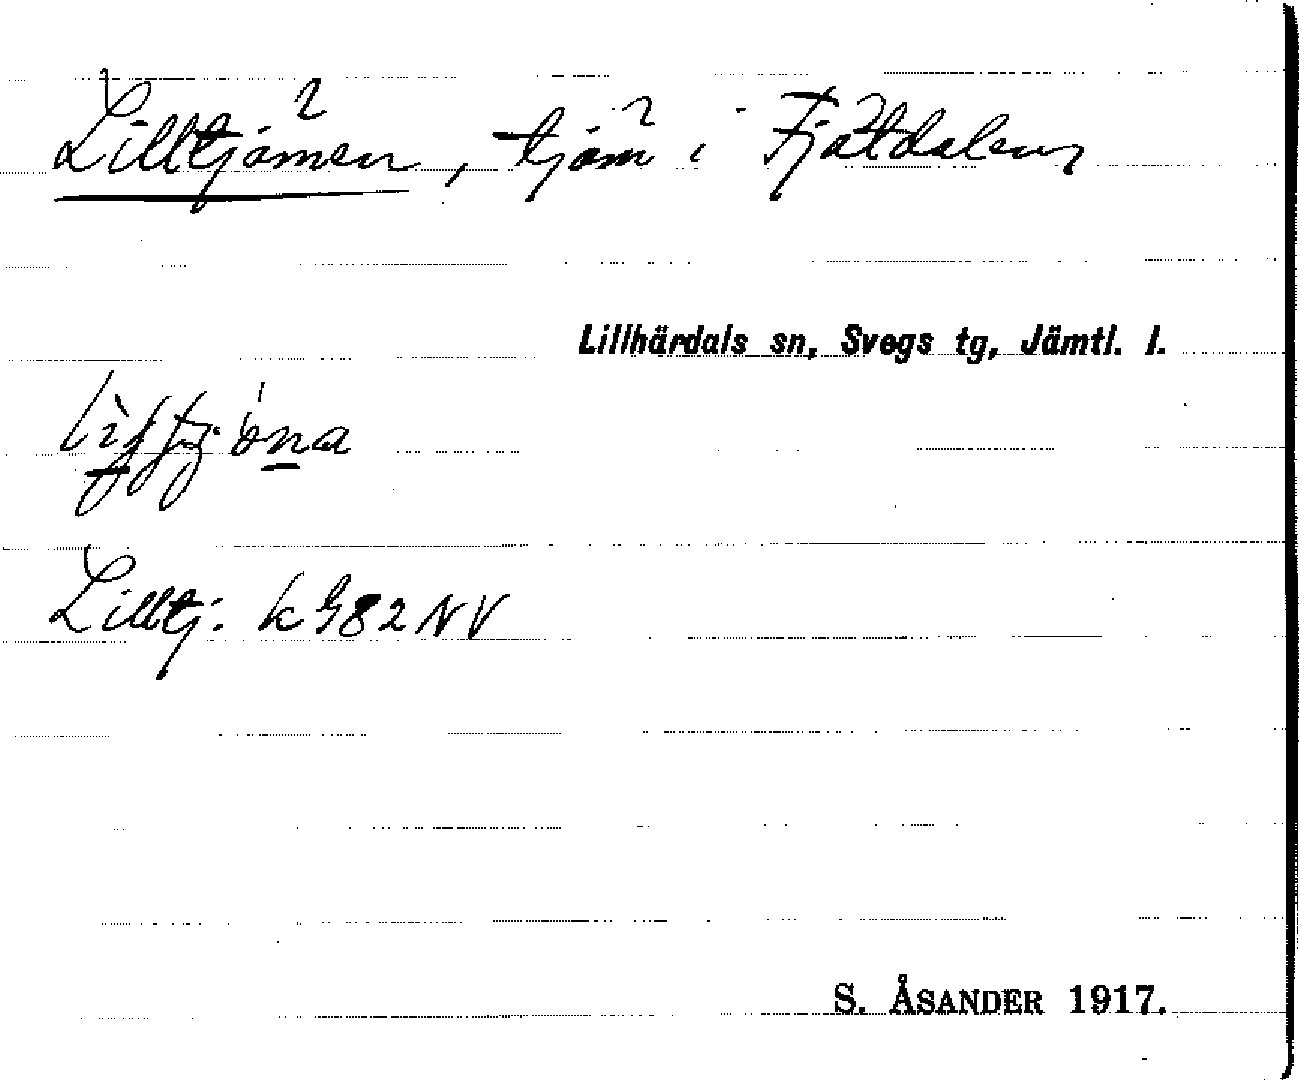 Lilltjärnen, tjärn i Fjätdalen
Lillhärdals sn, Svegs tg, Jämtl. l.
Lilltj. k G82 NV
S. ÅSANDER 1917.